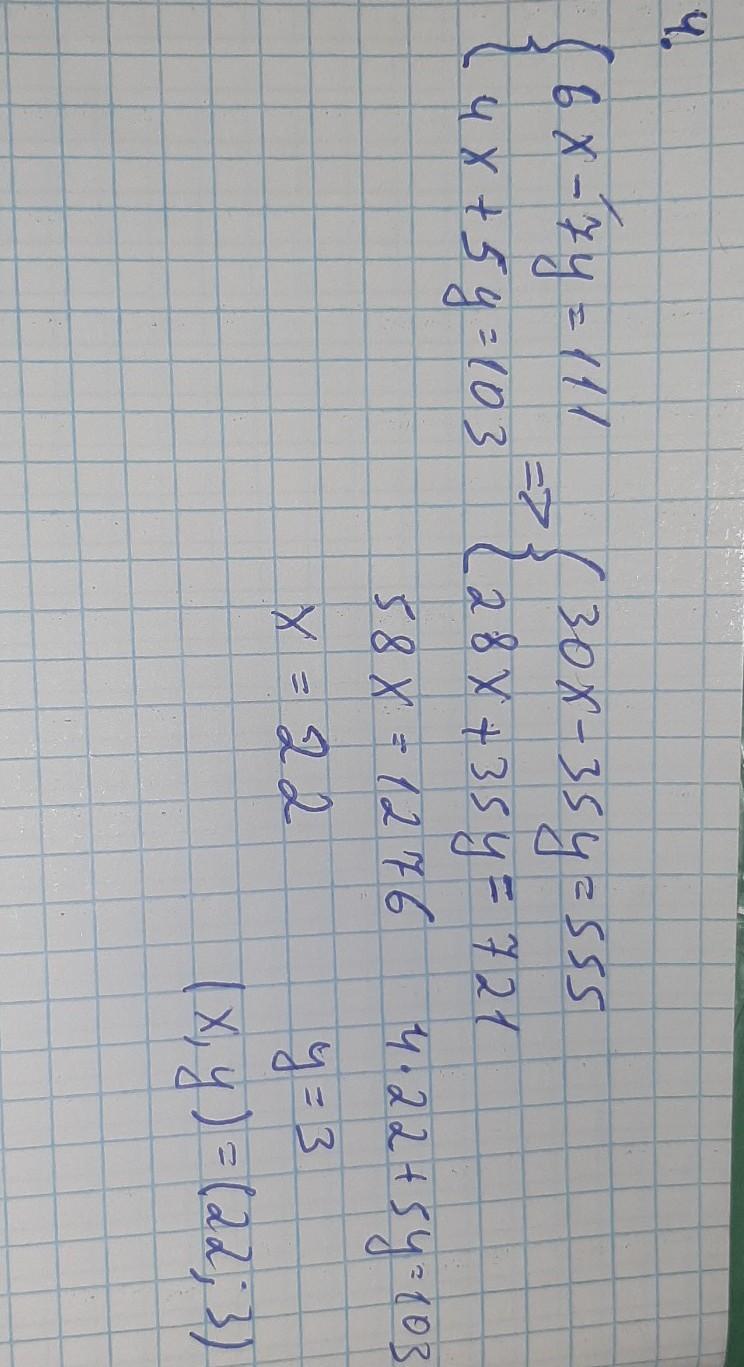 4.
{ 6x - 7y = 111
{ 4x + 5y = 103
=>
{ 30x - 35y = 555
{ 28x + 35y = 721
58x = 1276
x = 22
4·22 + 5y = 103
y = 3
(x, y) = (22; 3)